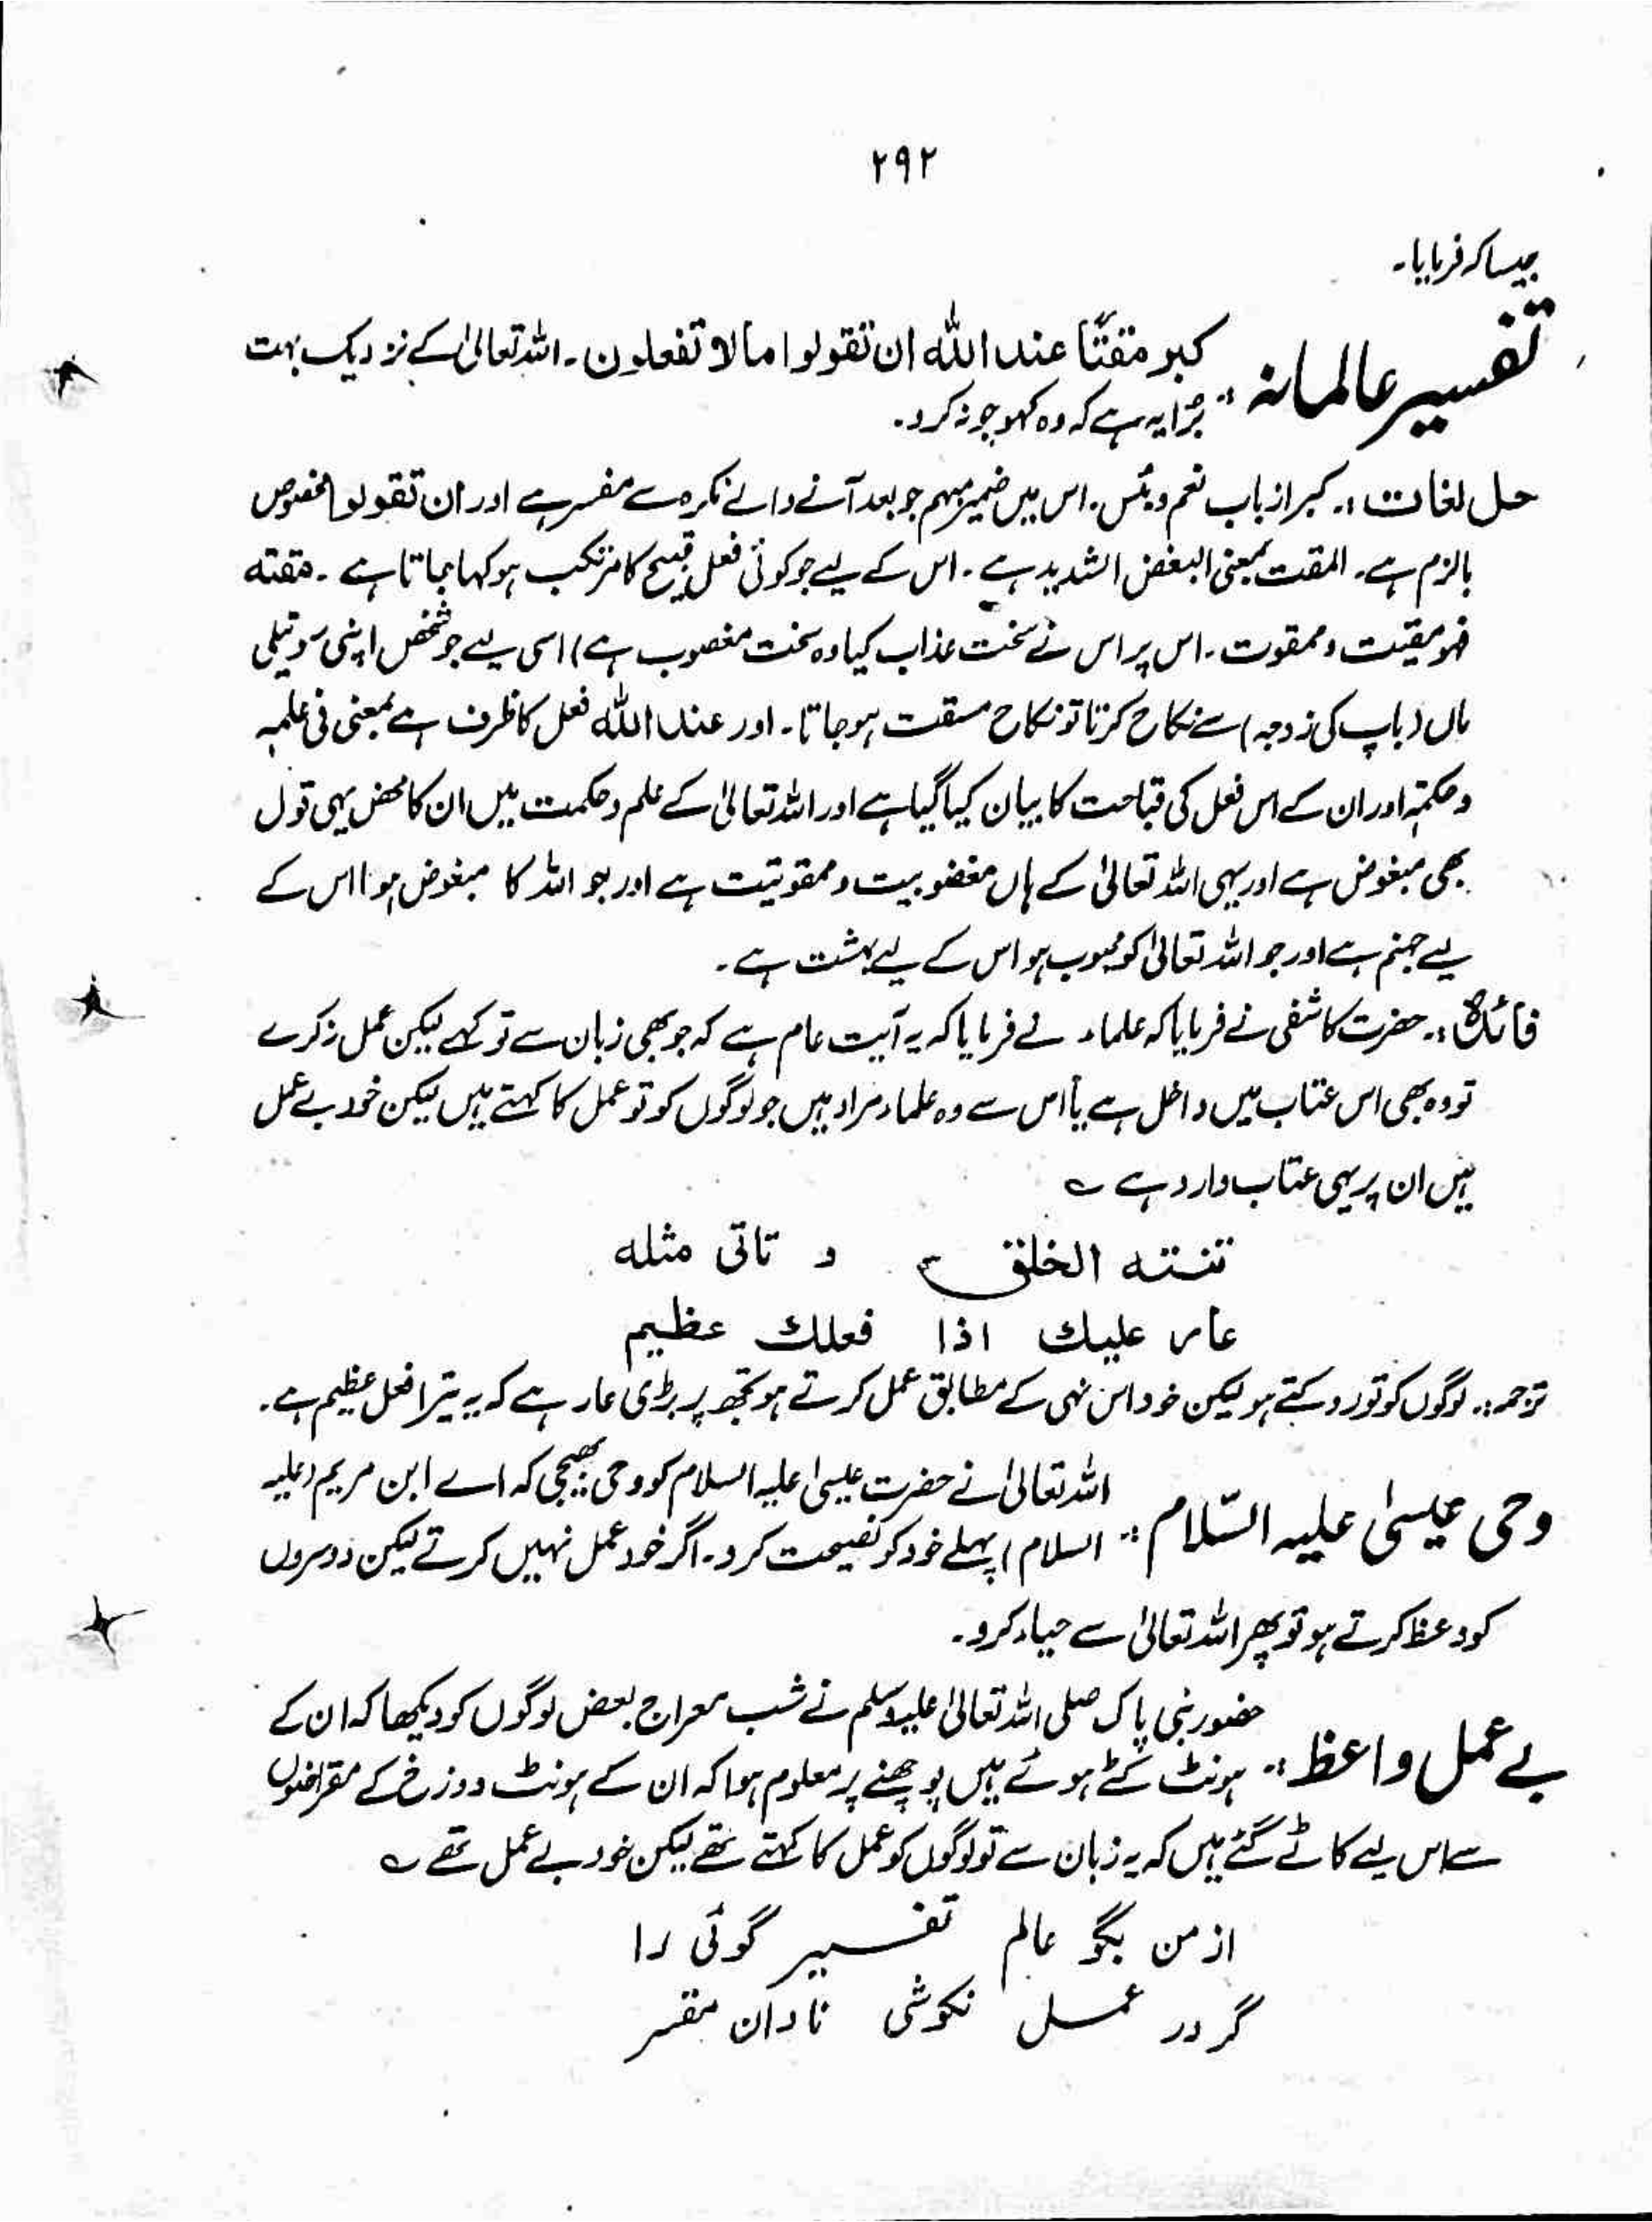 ۲۹۲
جیسا کہ فرمایا۔
تفسیر عالمانہ :۔ کبر مقتًا عند اللہ ان تقولوا مالا تفعلون۔ اللہ تعالیٰ کے نزدیک بہت
بُرا یہ ہے کہ وہ کہو جو نہ کرو۔
حل لغات :۔ کبر از باب نعم و بئس۔ اس میں ضمیر مبہم جو بعد آنے والے نکرہ سے مفسر ہے اور ان تقولوا مخصوص
بالزم ہے۔ المقت بمعنی البغض الشدید ہے۔ اس کے لیے جو کوئی فعل قبیح کا مرتکب ہو کہا جاتا ہے۔ مقتہ
فہو مقیت و ممقوت۔ اس پر اس نے سخت عذاب کیا وہ سخت مغصوب ہے) اسی لیے جو شخص اپنی سوتیلی
ماں (باپ کی زوجہ) سے نکاح کرتا تو نکاح مسقت ہو جاتا۔ اور عند اللہ فعل کا ظرف ہے بمعنی فی علمہ
و حکمتہ اور ان کے اس فعل کی قباحت کا بیان کیا گیا ہے اور اللہ تعالیٰ کے علم و حکمت میں ان کا محض یہی قول
بھی مبغوض ہے اور یہی اللہ تعالیٰ کے ہاں مغضوبیت و ممقوتیت ہے اور جو اللہ کا مبغوض ہوا اس کے
لیے جہنم ہے اور جو اللہ تعالیٰ کو محبوب ہو اس کے لیے بہشت ہے۔
فائدہ :۔ حضرت کاشفی نے فرمایا کہ علماء نے فرمایا کہ یہ آیت عام ہے کہ جو بھی زبان سے تو کہے لیکن عمل نہ کرے
تو وہ بھی اس عتاب میں داخل ہے یا اس سے وہ علماء مراد ہیں جو لوگوں کو تو عمل کا کہتے ہیں لیکن خود بے عمل
ہیں ان پر یہی عتاب وارد ہے ؎
تنتہ الخلق و تاتی مثلہ
عار علیک اذا فعلک عظیم
ترجمہ :۔ لوگوں کو تو روکتے ہو لیکن خود اس نہی کے مطابق عمل کرتے ہو تجھ پر بڑی عار ہے کہ یہ تیرا فعل عظیم ہے۔
وحی عیسیٰ علیہ السّلام :۔ اللہ تعالیٰ نے حضرت عیسیٰ علیہ السلام کو وحی بھیجی کہ اے ابن مریم (علیہ
السلام) پہلے خود کو نصیحت کرو۔ اگر خود عمل نہیں کرتے لیکن دوسروں
کو وعظ کرتے ہو تو پھر اللہ تعالیٰ سے حیاء کرو۔
بے عمل واعظ :۔ حضور نبی پاک صلی اللہ تعالیٰ علیہ وسلم نے شب معراج بعض لوگوں کو دیکھا کہ ان کے
ہونٹ کٹے ہوئے ہیں پوچھنے پر معلوم ہوا کہ ان کے ہونٹ دوزخ کے مقراضوں
سے اس لیے کاٹے گئے ہیں کہ یہ زبان سے تو لوگوں کو عمل کا کہتے تھے لیکن خود بے عمل تھے ؎
از من بگو عالم تفسیر گوئی را
گر در عمل نکوشی نادان مفسر